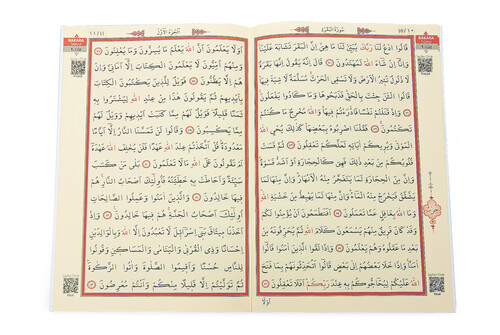 سورة البقرة
قَالُوا ادْعُ لَنَا رَبَّكَ يُبَيِّنْ لَنَا مَا هِيَ إِنَّ الْبَقَرَ تَشَابَهَ عَلَيْنَا
وَإِنَّا إِنْ شَاءَ اللّٰهُ لَمُهْتَدُونَ قَالَ إِنَّهُ يَقُولُ إِنَّهَا بَقَرَةٌ
لَا ذَلُولٌ تُثِيرُ الْأَرْضَ وَلَا تَسْقِي الْحَرْثَ مُسَلَّمَةٌ لَا شِيَةَ فِيهَا
قَالُوا الْآنَ جِئْتَ بِالْحَقِّ فَذَبَحُوهَا وَمَا كَادُوا يَفْعَلُونَ
وَإِذْ قَتَلْتُمْ نَفْسًا فَادَّارَأْتُمْ فِيهَا وَاللّٰهُ مُخْرِجٌ مَا كُنْتُمْ
تَكْتُمُونَ فَقُلْنَا اضْرِبُوهُ بِبَعْضِهَا كَذٰلِكَ يُحْيِي اللّٰهُ
الْمَوْتٰى وَيُرِيكُمْ آيَاتِهِ لَعَلَّكُمْ تَعْقِلُونَ ثُمَّ قَسَتْ
قُلُوبُكُمْ مِنْ بَعْدِ ذٰلِكَ فَهِيَ كَالْحِجَارَةِ أَوْ أَشَدُّ قَسْوَةً
وَإِنَّ مِنَ الْحِجَارَةِ لَمَا يَتَفَجَّرُ مِنْهُ الْأَنْهَارُ وَإِنَّ مِنْهَا لَمَا
يَشَّقَّقُ فَيَخْرُجُ مِنْهُ الْمَاءُ وَإِنَّ مِنْهَا لَمَا يَهْبِطُ مِنْ خَشْيَةِ اللّٰهِ
وَمَا اللّٰهُ بِغَافِلٍ عَمَّا تَعْمَلُونَ أَفَتَطْمَعُونَ أَنْ يُؤْمِنُوا لَكُمْ
وَقَدْ كَانَ فَرِيقٌ مِنْهُمْ يَسْمَعُونَ كَلَامَ اللّٰهِ ثُمَّ يُحَرِّفُونَهُ مِنْ
بَعْدِ مَا عَقَلُوهُ وَهُمْ يَعْلَمُونَ وَإِذَا لَقُوا الَّذِينَ آمَنُوا قَالُوا
آمَنَّا وَإِذَا خَلَا بَعْضُهُمْ إِلٰى بَعْضٍ قَالُوا أَتُحَدِّثُونَهُمْ بِمَا فَتَحَ
اللّٰهُ عَلَيْكُمْ لِيُحَاجُّوكُمْ بِهِ عِنْدَ رَبِّكُمْ أَفَلَا تَعْقِلُونَ
أَوَلَا
الجزء الأول
BAKARA
أَوَلَا يَعْلَمُونَ أَنَّ اللّٰهَ يَعْلَمُ مَا يُسِرُّونَ وَمَا يُعْلِنُونَ
وَمِنْهُمْ أُمِّيُّونَ لَا يَعْلَمُونَ الْكِتَابَ إِلَّا أَمَانِيَّ وَإِنْ
هُمْ إِلَّا يَظُنُّونَ فَوَيْلٌ لِلَّذِينَ يَكْتُبُونَ الْكِتَابَ
بِأَيْدِيهِمْ ثُمَّ يَقُولُونَ هٰذَا مِنْ عِنْدِ اللّٰهِ لِيَشْتَرُوا بِهِ
ثَمَنًا قَلِيلًا فَوَيْلٌ لَهُمْ مِمَّا كَتَبَتْ أَيْدِيهِمْ وَوَيْلٌ لَهُمْ
مِمَّا يَكْسِبُونَ وَقَالُوا لَنْ تَمَسَّنَا النَّارُ إِلَّا أَيَّامًا
مَعْدُودَةً قُلْ أَتَّخَذْتُمْ عِنْدَ اللّٰهِ عَهْدًا فَلَنْ يُخْلِفَ اللّٰهُ عَهْدَهُ
أَمْ تَقُولُونَ عَلَى اللّٰهِ مَا لَا تَعْلَمُونَ بَلٰى مَنْ كَسَبَ
سَيِّئَةً وَأَحَاطَتْ بِهِ خَطِيئَتُهُ فَأُولٰئِكَ أَصْحَابُ النَّارِ هُمْ
فِيهَا خَالِدُونَ وَالَّذِينَ آمَنُوا وَعَمِلُوا الصَّالِحَاتِ
أُولٰئِكَ أَصْحَابُ الْجَنَّةِ هُمْ فِيهَا خَالِدُونَ وَإِذْ
أَخَذْنَا مِيثَاقَ بَنِي إِسْرَائِيلَ لَا تَعْبُدُونَ إِلَّا اللّٰهَ وَبِالْوَالِدَيْنِ
إِحْسَانًا وَذِي الْقُرْبٰى وَالْيَتَامٰى وَالْمَسَاكِينِ وَقُولُوا
لِلنَّاسِ حُسْنًا وَأَقِيمُوا الصَّلٰوةَ وَآتُوا الزَّكٰوةَ
ثُمَّ تَوَلَّيْتُمْ إِلَّا قَلِيلًا مِنْكُمْ وَأَنْتُمْ مُعْرِضُونَ